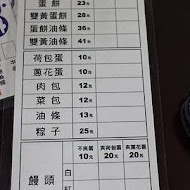 蛋餅 23元
雙黃蛋餅 28元
蛋餅油條 35元
雙黃油條 41元
荷包蛋 10元
蔥花蛋 10元
肉包 12元
菜包 12元
油條 13元
粽子 25元
不夾蛋 夾荷包蛋 夾蔥花蛋
10元 20元 20元
饅頭
白
紅